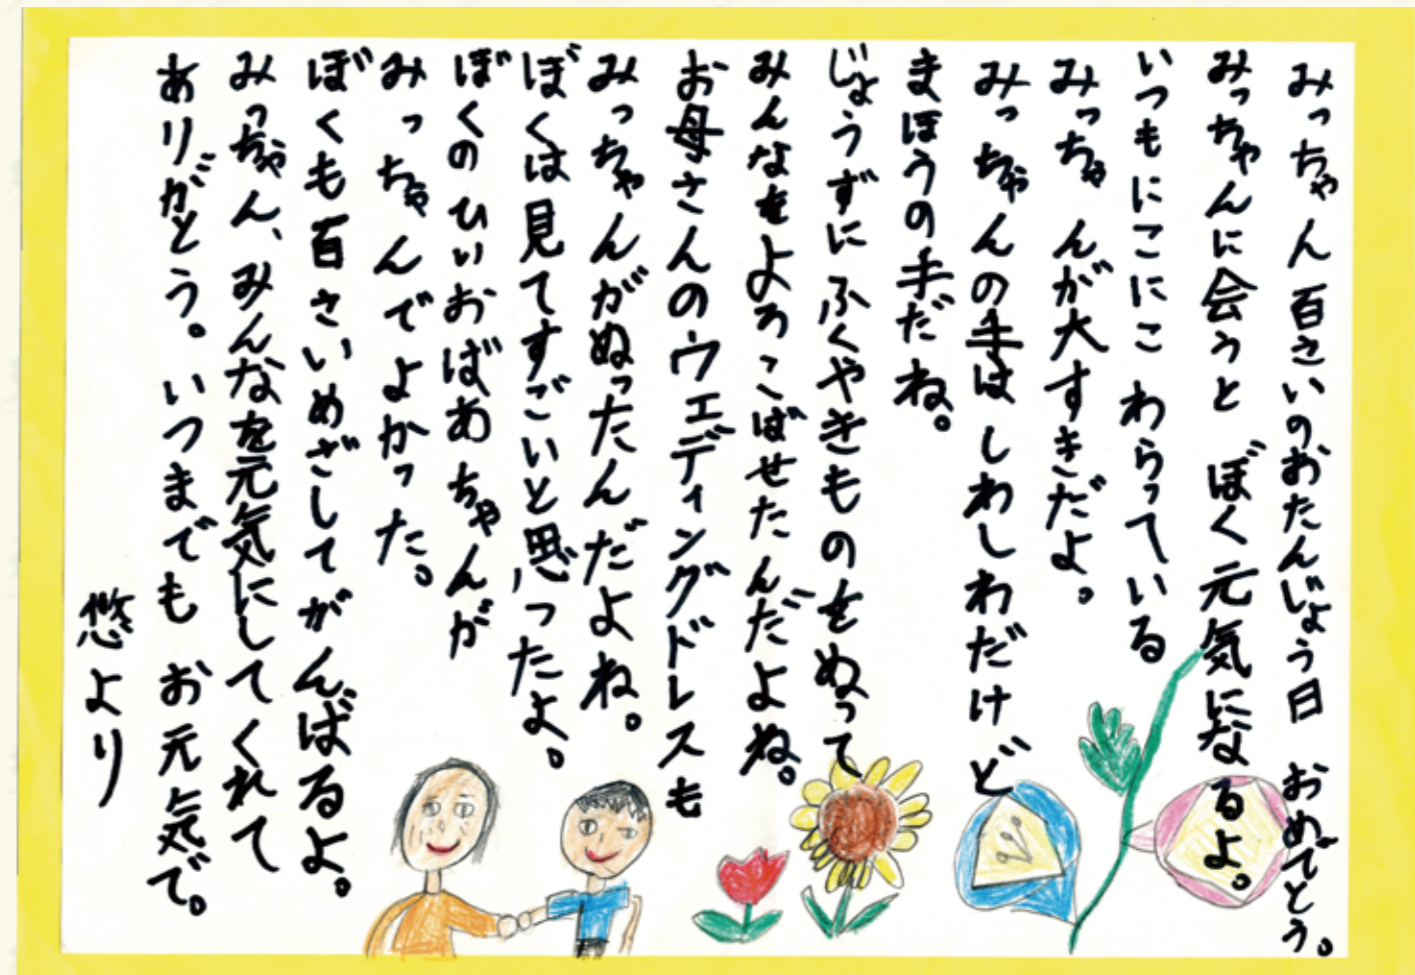 みっちゃん 百さいのおたんじょう日 おめでとう。
みっちゃんに会うと ぼく元気になるよ。
いつもにこにこ わらっている
みっちゃんが大すきだよ。
みっちゃんの手は しわしわだけど
まほうの手だね。
じょうずに ふくやきものをぬって
みんなをよろこばせたんだよね。
お母さんのウエディングドレスも
みっちゃんがぬったんだよね。
ぼくは見てすごいと思ったよ。
ぼくのひいおばあちゃんが
みっちゃんでよかった。
ぼくも百さいめざしてがんばるよ。
みっちゃん、みんなを元気にしてくれて
ありがとう。いつまでも お元気で。
悠より